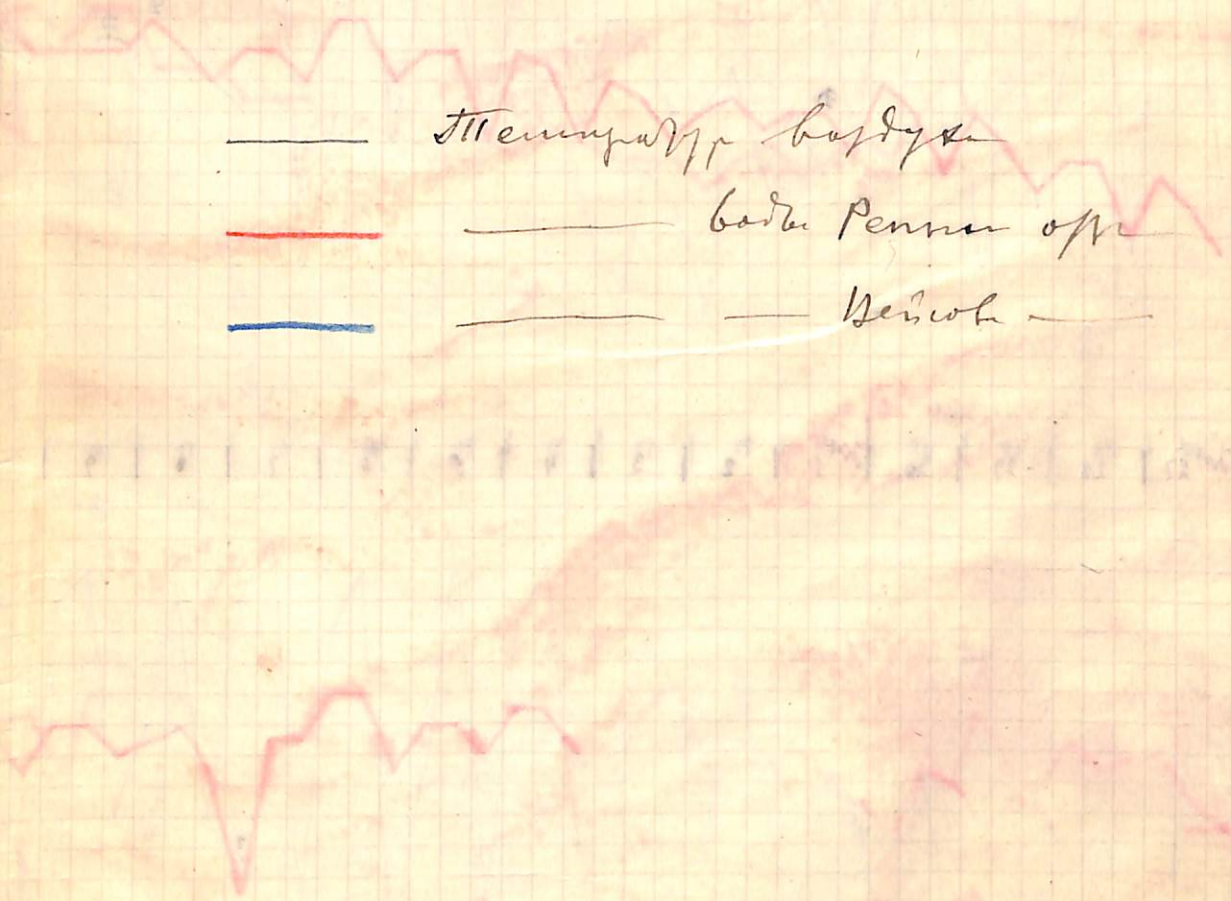 Температур воздуха
——— воды Репное оз.
——— —— Вейсово ——